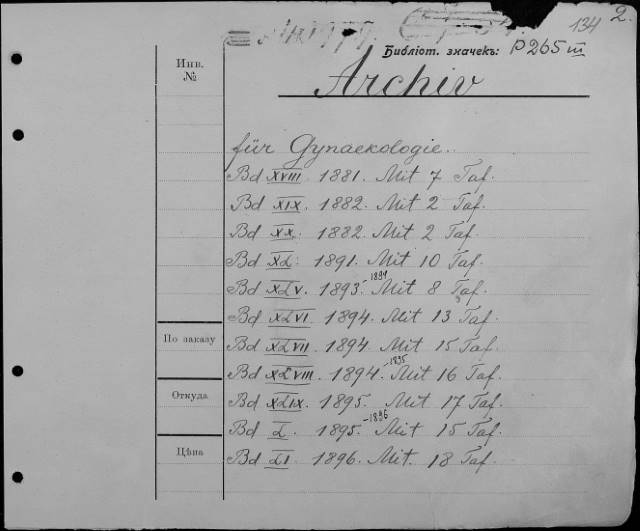 134 2.
Библіот. значекъ: P265III
Инв. №
Archiv
für Gynaekologie.
Bd XVIII. 1881. Mit 7 Taf.
Bd XIX. 1882. Mit 2 Taf.
Bd XX. 1882. Mit 2 Taf.
Bd XL. 1891. Mit 10 Taf.
Bd XLV. 1893-1894 Mit 8 Taf.
Bd XLVI. 1894. Mit 13 Taf.
По заказу
Bd XLVII. 1894. Mit 15 Taf.
Bd XLVIII. 1894-1895 Mit 16 Taf.
Откуда
Bd XLIX. 1895. Mit 17 Taf.
Bd L. 1895-1896 Mit 15 Taf.
Цѣна
Bd LI. 1896. Mit. 18 Taf.